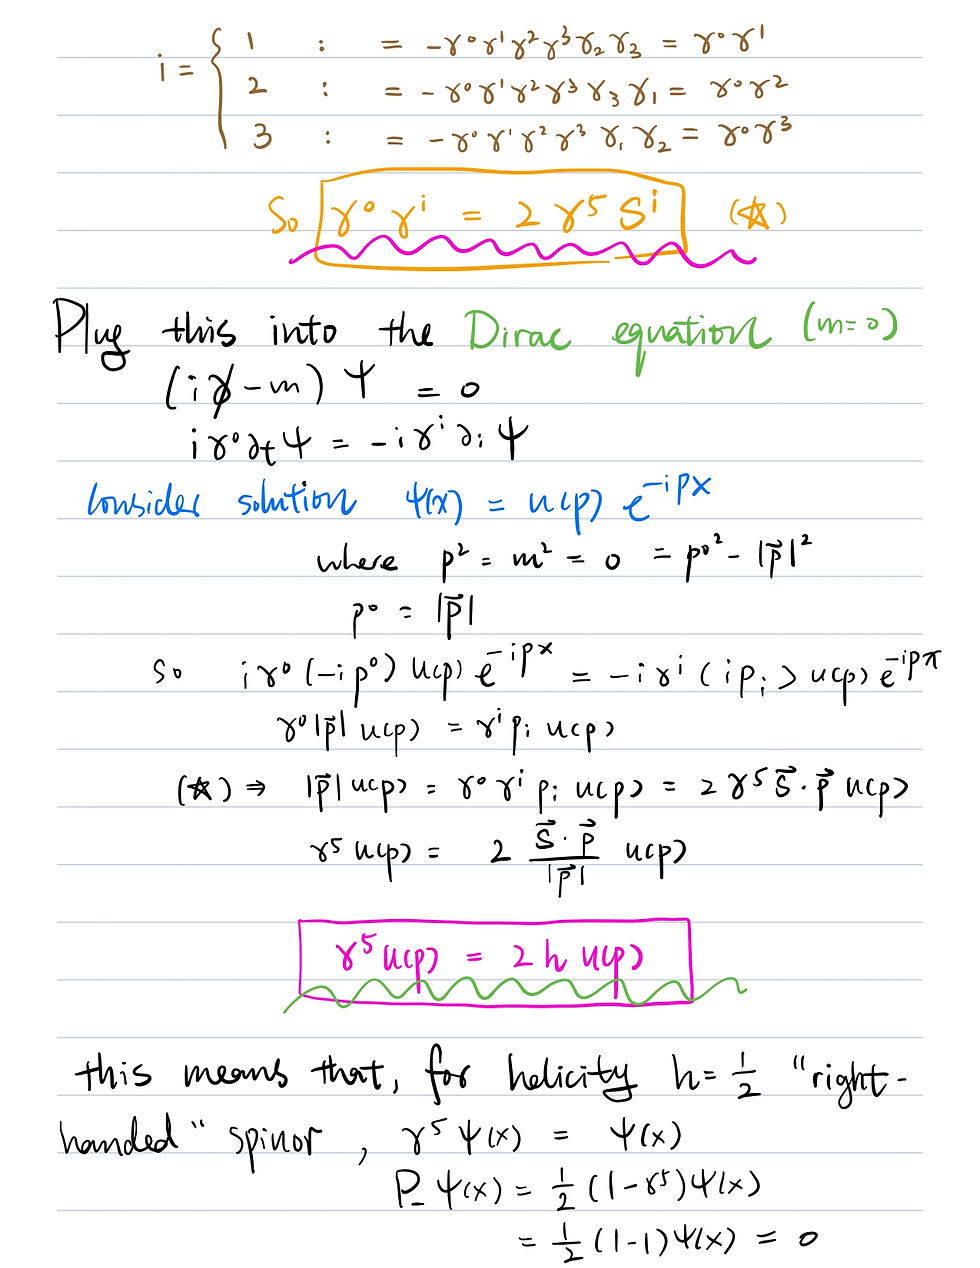 i = { 1 : = -γ⁰γ¹γ²γ³γ₂γ₃ = γ⁰γ¹
2 : = -γ⁰γ¹γ²γ³γ₃γ₁ = γ⁰γ²
3 : = -γ⁰γ¹γ²γ³γ₁γ₂ = γ⁰γ³
So γ⁰γⁱ = 2γ⁵Sⁱ (☆)
Plug this into the Dirac equation (m=0)
(i∂̸ - m) Ψ = 0
iγ⁰∂ₜΨ = -iγⁱ∂ᵢΨ
Consider solution Ψ(x) = u(p) e^{-ipx}
where p² = m² = 0 = p⁰² - |p⃗|²
p⁰ = |p⃗|
So iγ⁰(-ip⁰) u(p) e^{-ipx} = -iγⁱ(ipᵢ) u(p) e^{-ipx}
γ⁰|p⃗| u(p) = γⁱpᵢ u(p)
(☆) ⇒ |p⃗| u(p) = γ⁰γⁱ pᵢ u(p) = 2γ⁵ S⃗·p⃗ u(p)
γ⁵ u(p) = 2 S⃗·p⃗/|p⃗| u(p)
γ⁵u(p) = 2h u(p)
this means that, for helicity h = 1/2 "right-
handed" spinor, γ⁵Ψ(x) = Ψ(x)
P₋Ψ(x) = 1/2 (1-γ⁵)Ψ(x)
= 1/2 (1-1)Ψ(x) = 0